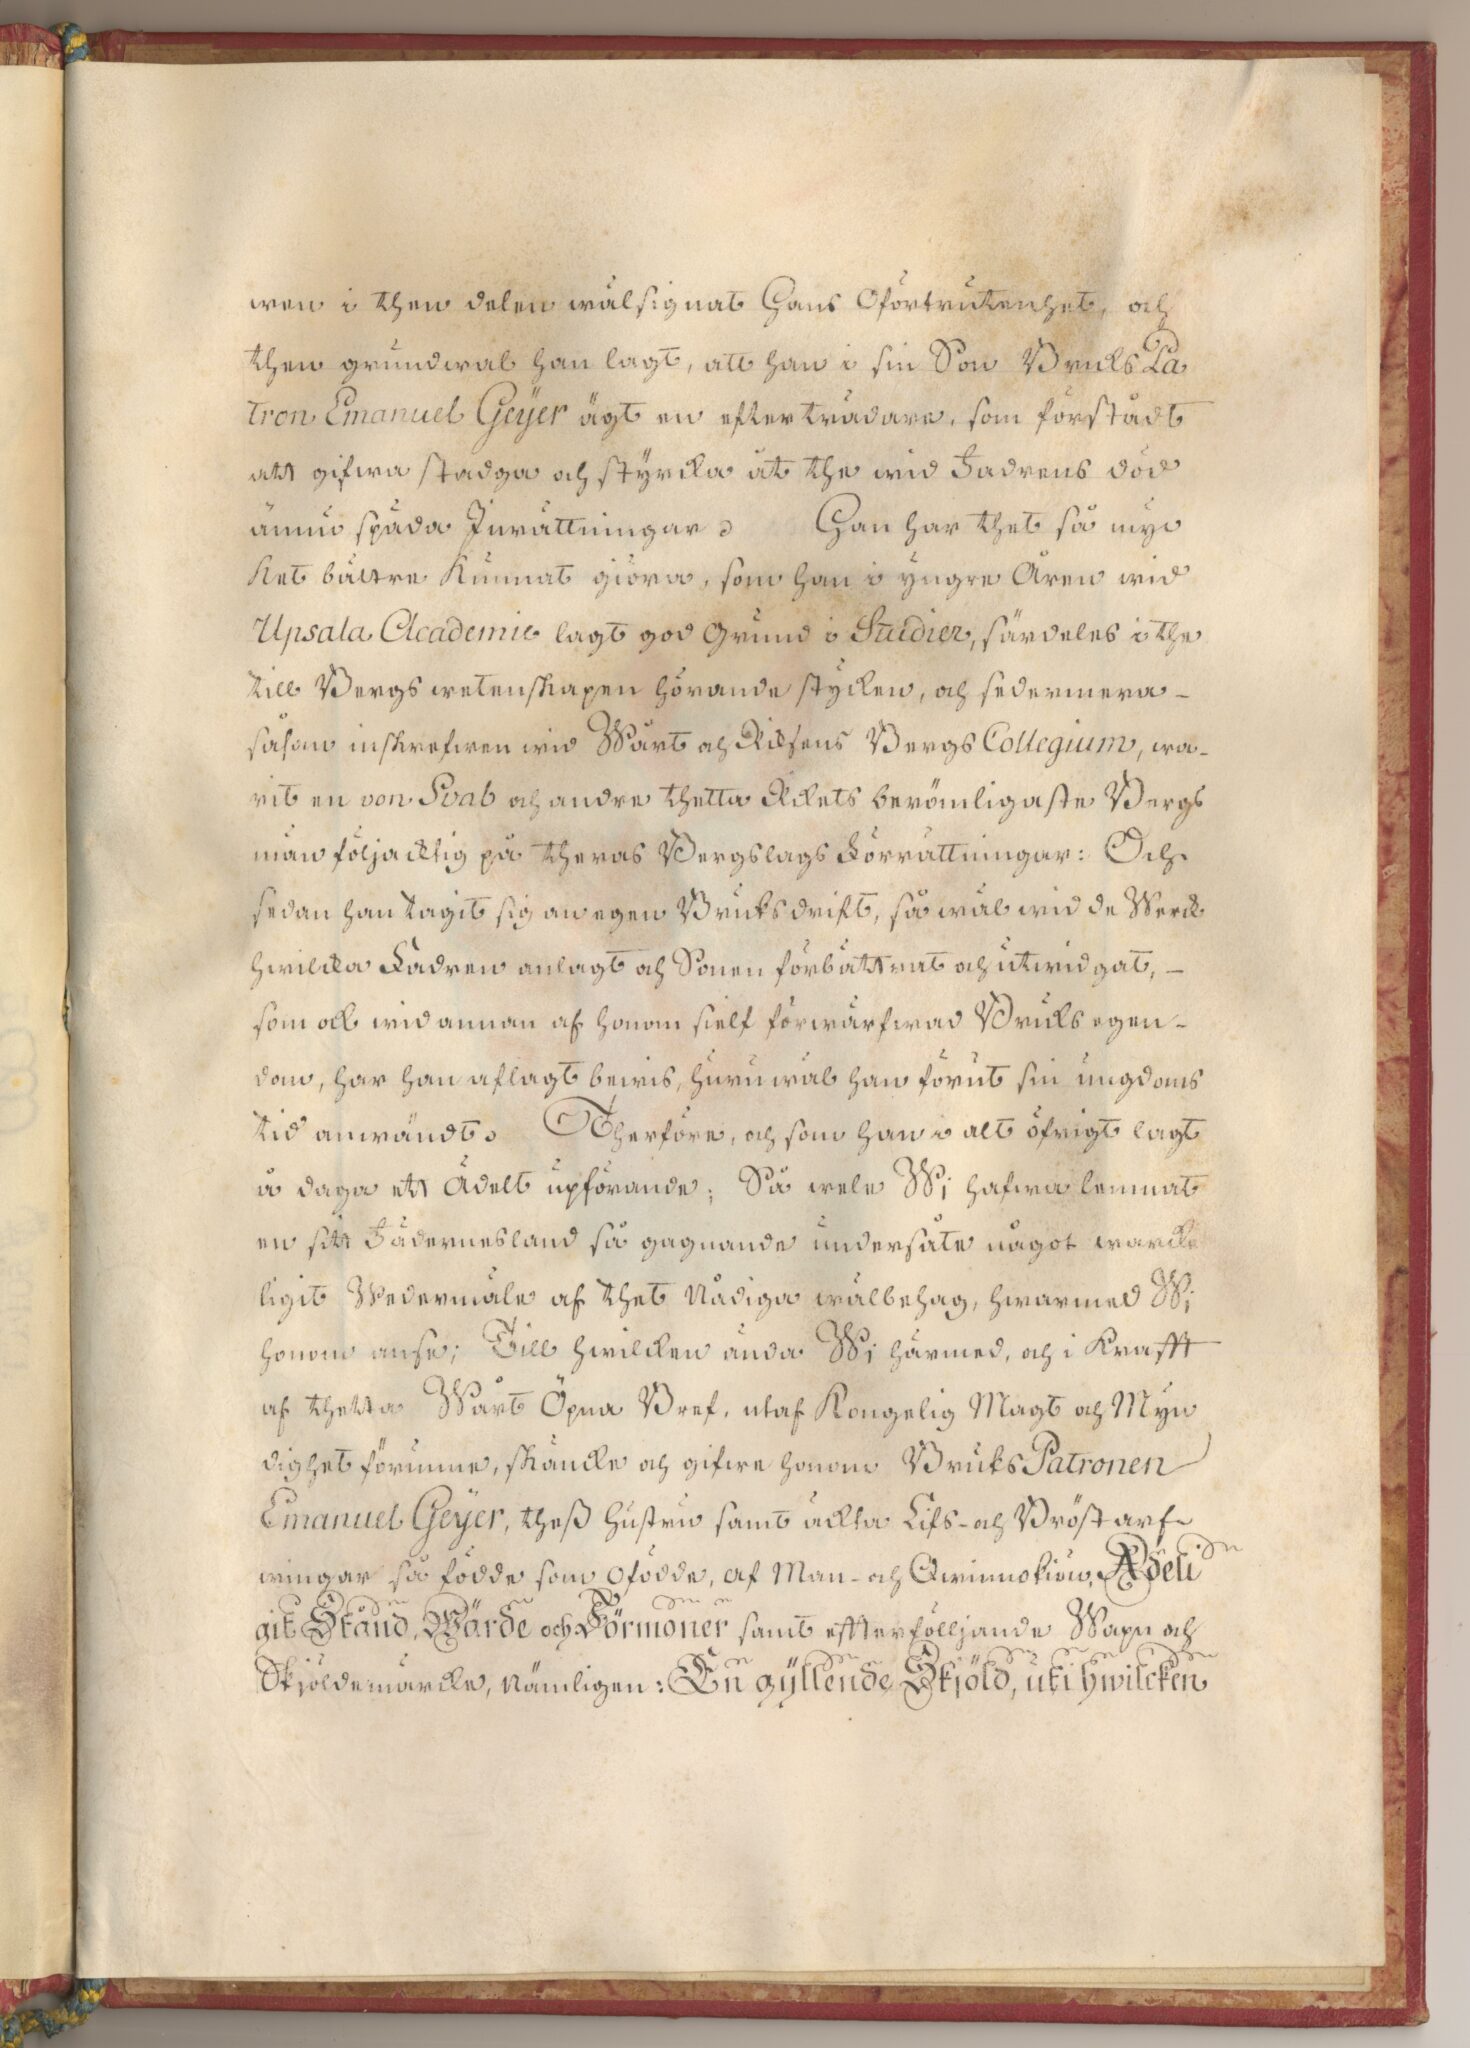 wen i then delen wälsignat Hans Oförtrutenhet, och
then grundwal han lagt, att han i sin Son Bruks Pa
tron Emanuel Geÿer ägt en efterträdare, som förstådt
att gifwa stadga och stÿrcka åt the wid Fadrens död
ännu späda Inrättningar. Han har thet så myc
ket bättre kunnat giöra, som han i yngre Åren wid
Upsala Academie lagt god Grund i Studier, särdeles i the
till Bergswetenskapen hörande stÿcken, och sedermera -
såsom inskrefwen wid Wårt och Riksens Bergs Collegium, wa-
rit en von Svab och andre thetta Rikets berömligaste Bergs
män följacktig på theras Bergslags Förrättningar: Och
sedan han tagit sig an egen Bruksdrift, så wäl wid de Werck
hwilcka Fadren anlagt och Sonen förbättrat och utwidgat, -
som ock wid annan af honom sielf förwärfwad Bruks egen-
dom, har han aflagt bewis, huru wäl han förut sin ungdoms
tid anwändt. Therföre, och som han i alt öfrigt lagt
å daga ett Ädelt upförande; Så wele Wj hafwa lemnat
en sitt Fädernesland så gagnande undersåte något warck
ligit Wedermäle af thet Nådiga wälbehag, hwarmed Wj
honom anse; Till hwilcken ända Wj härmed, och i Krafft
af thetta Wårt Öpna Bref, utaf Kongelig Magt och Myn
dighet förunne, skäncke och gifwe honom Bruks Patronen
Emanuel Geÿer, theß hustru samt äckta Lifs- och Bröst arf-
wingar så födde som ofödde, af Man- och Qwinnokiön, Adeli
git Stånd, Wärde och Förmoner samt effterfölljande Wapn och
Skjöldemärcke, Nämligen: En gÿllende Skjöld, uti hwilcken